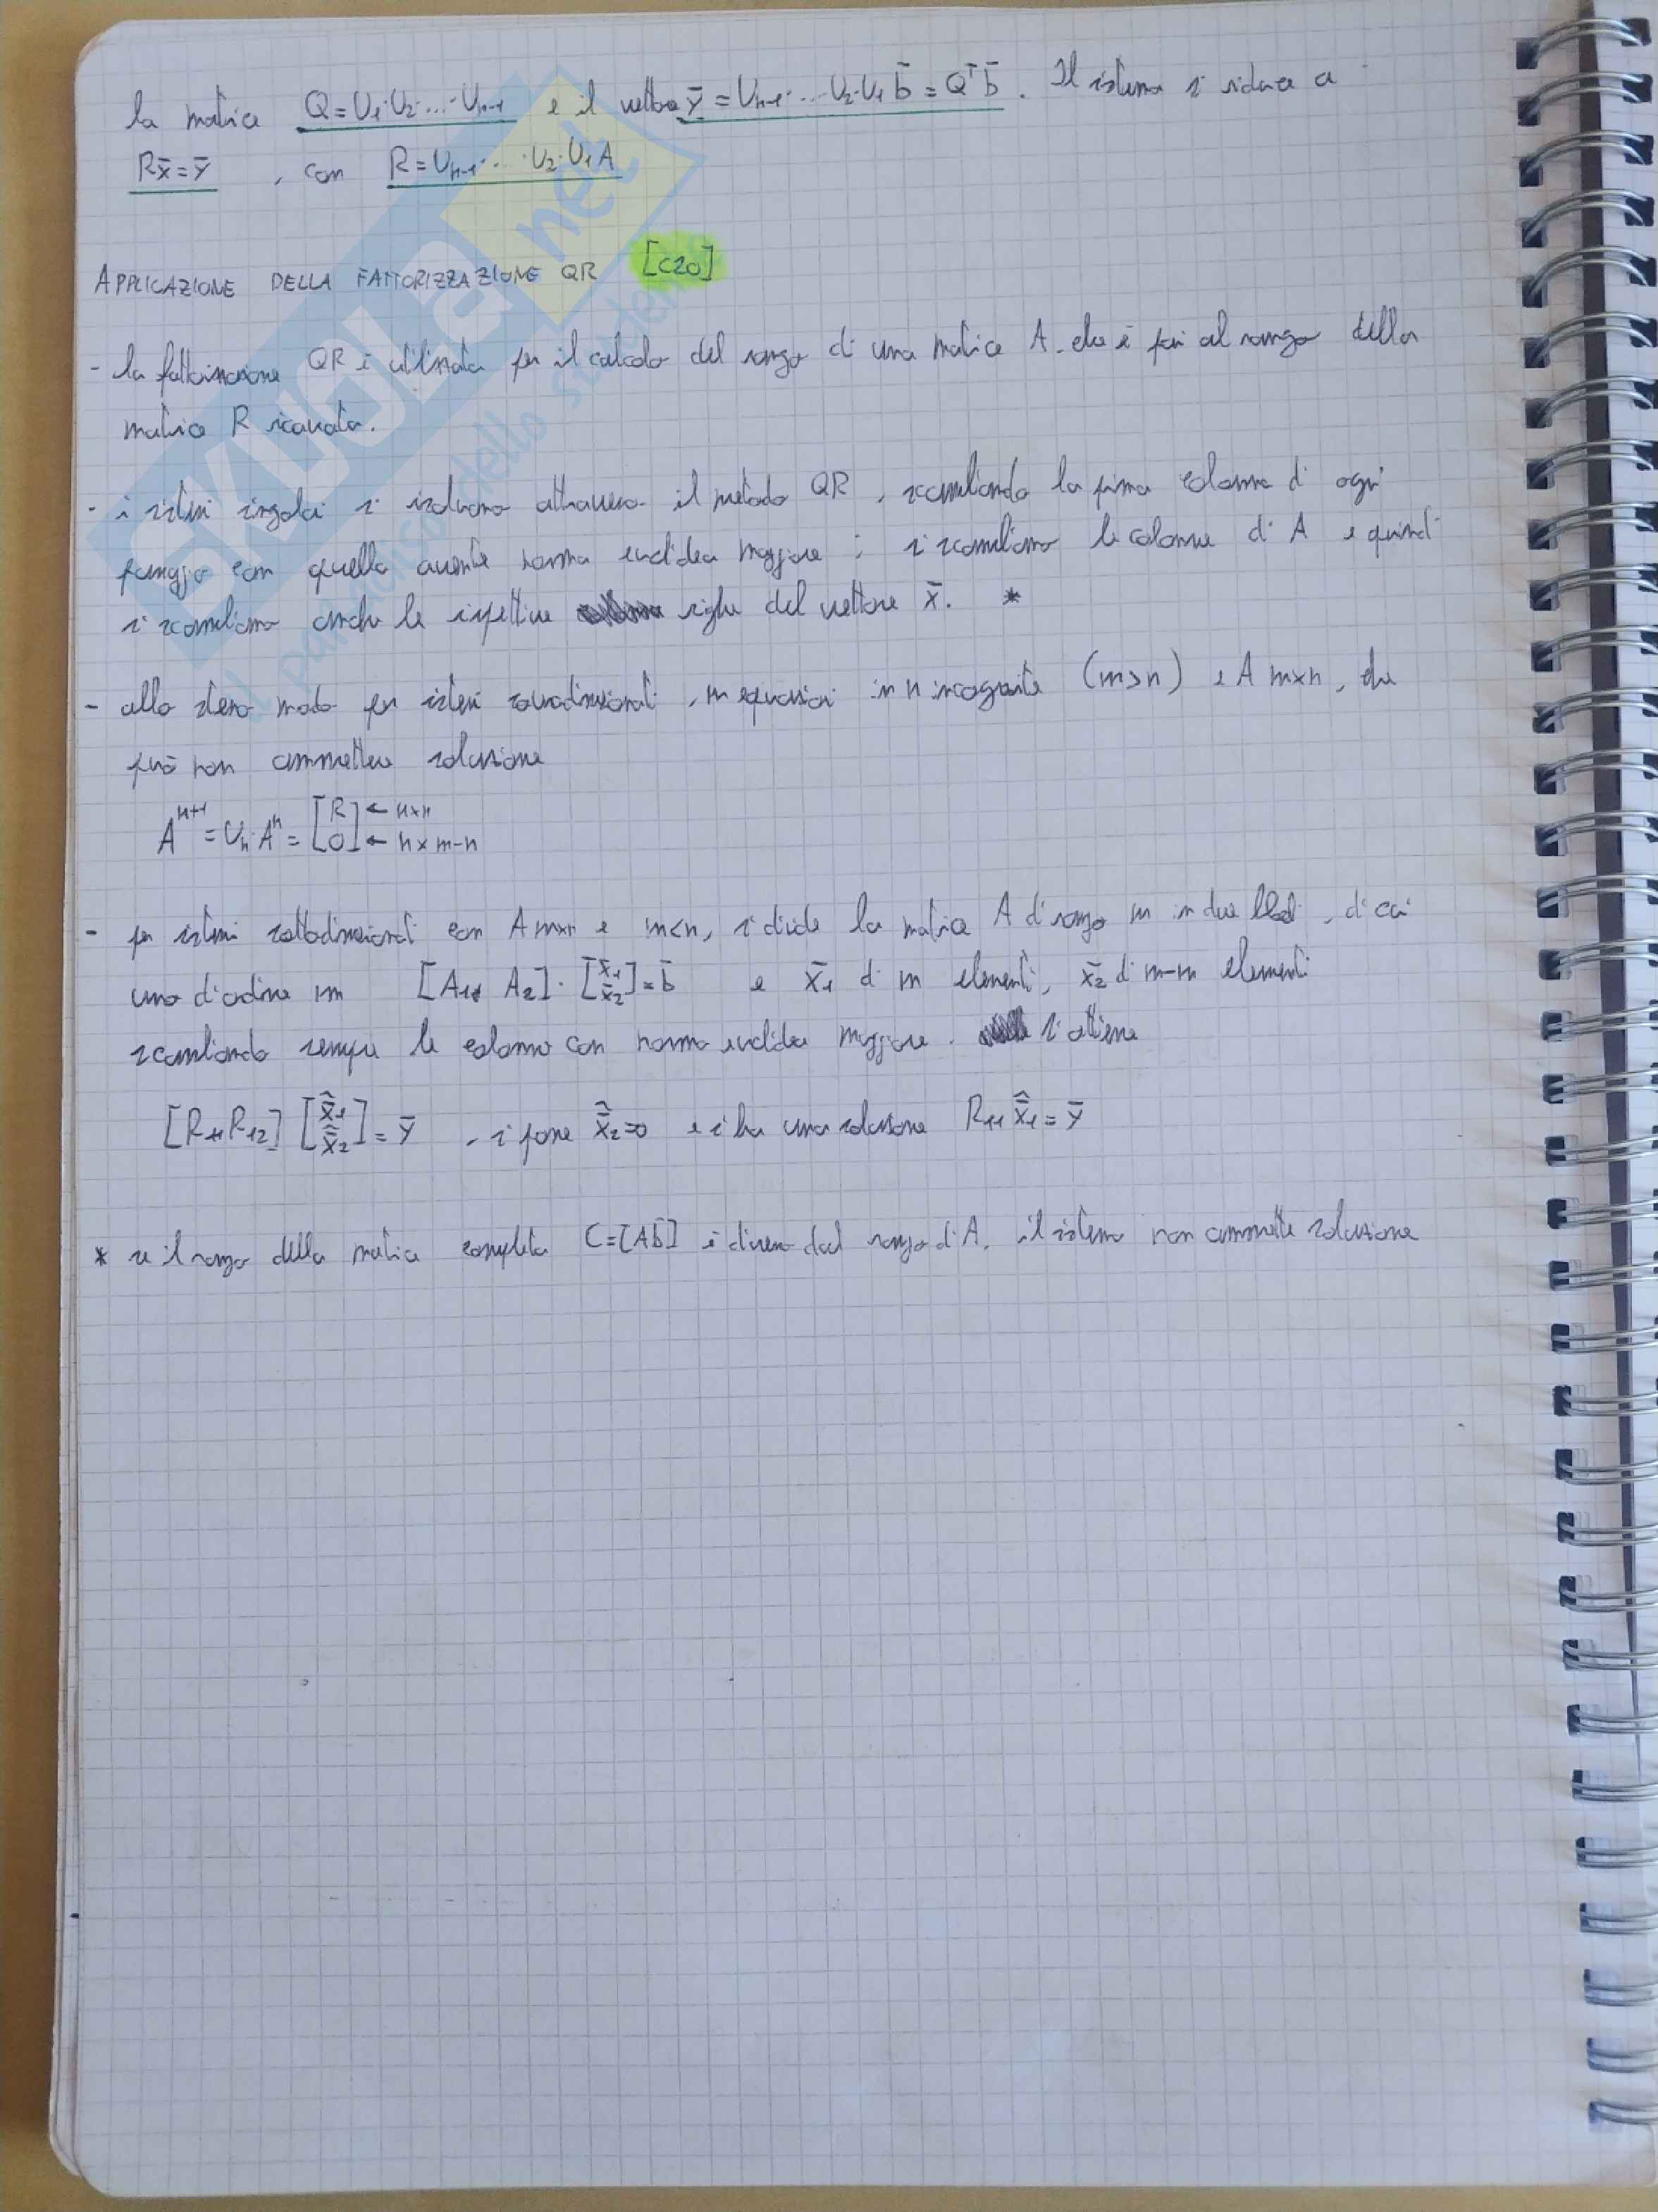 la matrice Q=U₁·U₂·...·Uₙ₋₁ e il vettore ȳ=Uₙ₋₁·...·U₂·U₁ b̄=Qᵀb̄. Il sistema si riduce a
Rx̄=ȳ , con R=Uₙ₋₁·...·U₂·U₁A
APPLICAZIONE DELLA FATTORIZZAZIONE QR [C20]
- la fattorizzazione QR è utilizzata per il calcolo del rango di una matrice A, che è pari al rango della
matrice R ricavata.
- i sistemi singolari si risolvono attraverso il metodo QR, scambiando la prima colonna di ogni
passaggio con quella avente norma euclidea maggiore; si scambiano le colonne di A e quindi
si scambiano anche le rispettive righe del vettore x̄. *
- allo stesso modo per sistemi sovradimensionati, m equazioni in n incognite (m>n) e A m×n, che
può non ammettere soluzione
Aⁿ⁺¹=Uₙ·Aⁿ=[R / 0] ← n×n ← n×m-n
- per sistemi sottodimensionati con A m×n e m<n, si divide la matrice A di rango m in due blocchi, di cui
uno di ordine m [A₁ A₂]·[x̄₁ / x̄₂]=b̄ e x̄₁ di m elementi, x̄₂ di m-m elementi
scambiando sempre le colonne con norma euclidea maggiore. si ottiene
[R₁₁R₁₂] [x̂̄₁ / x̂̄₂]=ȳ , si pone x̂̄₂=0 e si ha una soluzione R₁₁x̂̄₁=ȳ
* se il rango della matrice completa C=[Ab̄] è diverso dal rango di A, il sistema non ammette soluzione
SKUOLA.net
il paradiso dello studente